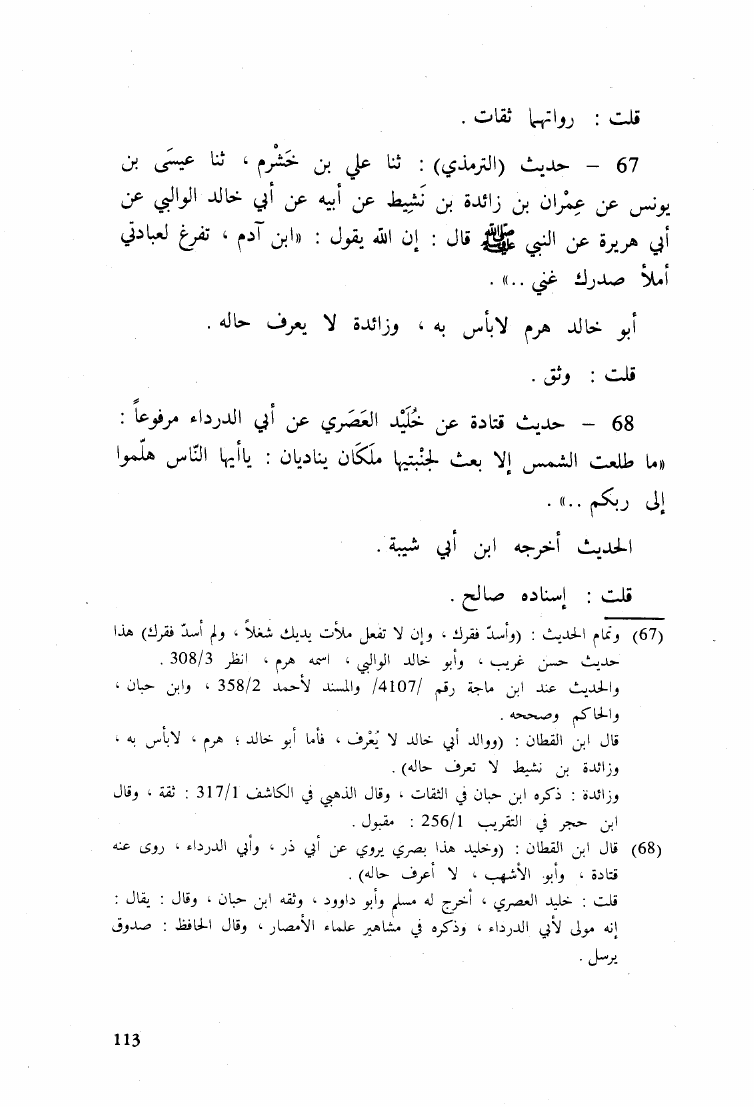 قلت : رواتها ثقات .
67 – حديث (الترمذي) : ثنا علي بن خَشْرم ، ثنا عيسَى بن
يونس عن عِمْران بن زائدة بن نَشِيط عن أبيه عن أبي خالد الوالبي عن
أبي هريرة عن النبي ﷺ قال : إن الله يقول : «ابن آدم ، تفرغ لعبادتي
أملأ صدرك غني ..» .
أبو خالد هرم لابأس به ، وزائدة لا يعرف حاله .
قلت : وثق .
68 – حديث قتادة عن خُلَيْد العَصَري عن أبي الدرداء مرفوعاً :
«ما طلعت الشمس إلا بعث لجَنْبتيها ملَكَان يناديان : ياأيها النّاس هلّموا
إلى ربكم ..» .
الحديث أخرجه ابن أبي شيبة .
قلت : إسناده صالح .
(67) وتمام الحديث : (وأسدّ فقرك ، وإن لا تفعل ملأت يديك شغلاً ، ولم أسدّ فقرك) هذا
حديث حسن غريب ، وأبو خالد الوالبي ، اسمه هرم ، انظر 308/3 .
والحديث عند ابن ماجة رقم /4107/ والمسند لأحمد 358/2 ، وابن حبان ،
والحاكم وصححه .
قال ابن القطان : (ووالد أبي خالد لا يُعْرف ، فأما أبو خالد ؛ هرم ، لابأس به ،
وزائدة بن نشيط لا تعرف حاله) .
وزائدة : ذكره ابن حبان في الثقات ، وقال الذهبي في الكاشف 317/1 : ثقة ، وقال
ابن حجر في التقريب 256/1 : مقبول .
(68) قال ابن القطان : (وخليد هذا بصري يروي عن أبي ذر ، وأبي الدرداء ، روى عنه
قتادة ، وأبو الأشهب ، لا أعرف حاله) .
قلت : خليد العصري ، أخرج له مسلم وأبو داوود ، وثقه ابن حبان ، وقال : يقال :
إنه مولى لأبي الدرداء ، وذكره في مشاهير علماء الأمصار ، وقال الحافظ : صدوق
يرسل .
113